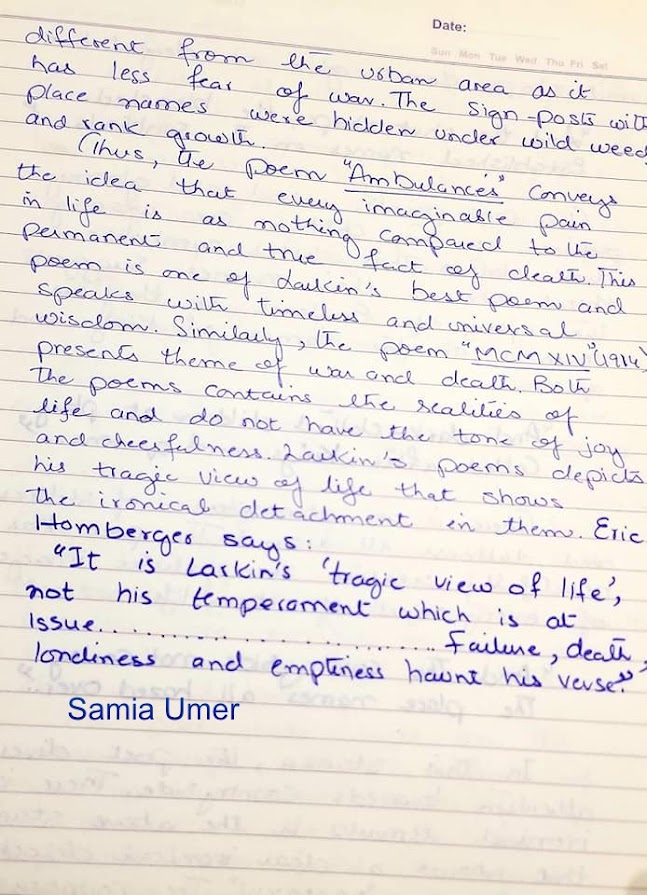 Date:
Sun Mon Tue Wed Thu Fri Sat
different from the urban area as it
has less fear of war. The sign-posts with
place names were hidden under wild weed
and rank growth.
Thus, the poem "Ambulances" conveys
the idea that every imaginable pain
in life is as nothing compared to the
permanent and true fact of death. This
poem is one of Larkin's best poem and
speaks with timeless and universal
wisdom. Similarly, the poem "MCMXIV" (1914)
presents theme of war and death. Both
the poems contains the realities of
life and do not have the tone of joy
and cheerfulness. Larkin's poems depicts
his tragic view of life that shows
the ironical detachment in them. Eric
Homberger says:
"It is Larkin's 'tragic view of life',
not his temperament which is at
issue.............................. Failure, death,
londiness and emptiness haunt his verse."
Samia Umer